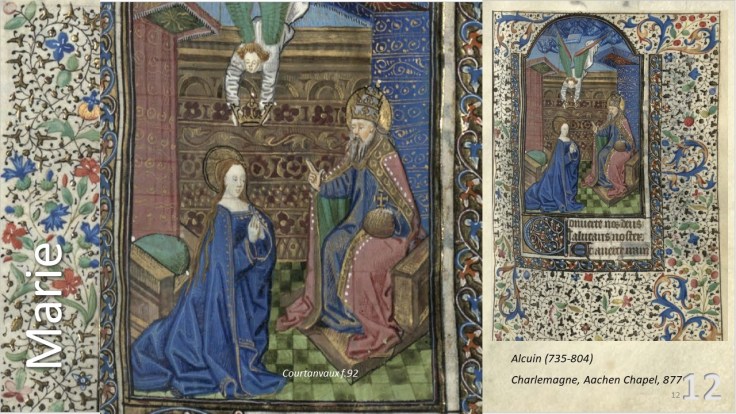 Marie
Courtanvaux f.92
Conuerte nos deus
salutaris noster.
Et auerte iram
Alcuin (735-804)
Charlemagne, Aachen Chapel, 877
12
12